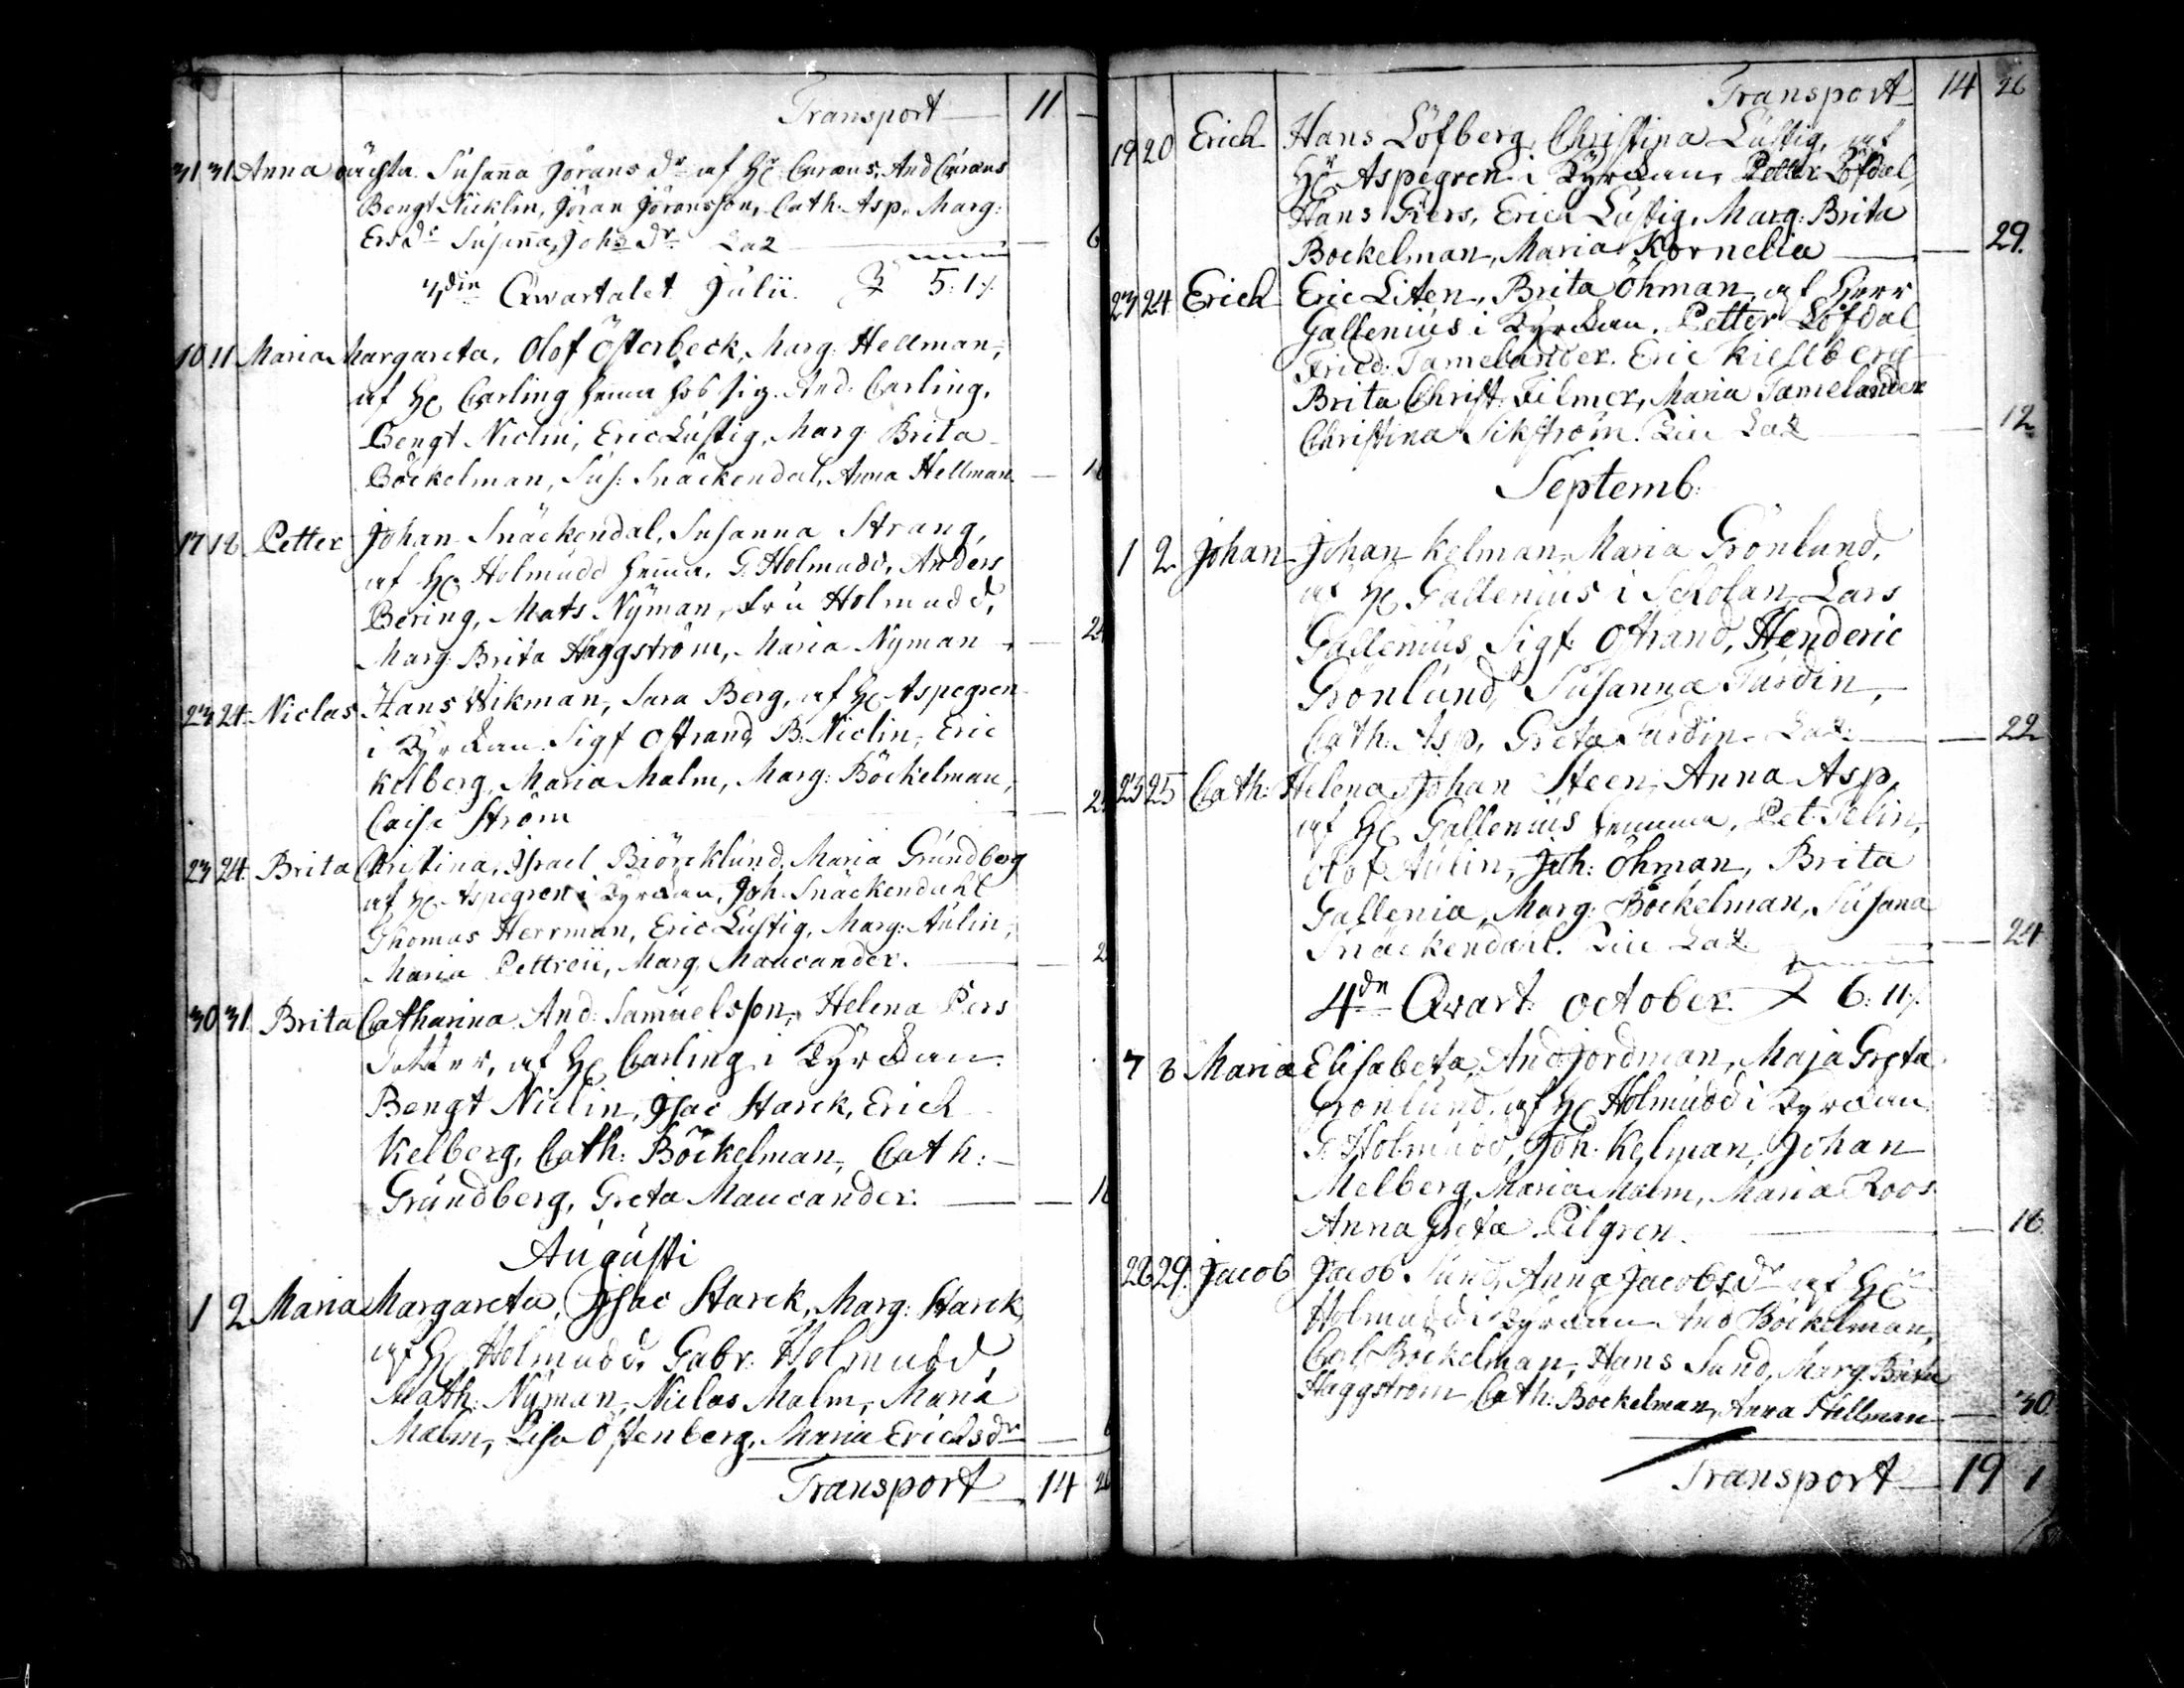 Transport 11 —
31 31 Anna oächta. Susanna Jörans dr af Hr Curæus, And Curæus
Bengt Nicklin, Jöran Jöransson, Cath: Asp, Marg:
Ersdr Susanna, Joh dr — 6
Qwartalet Julii 5:1
10 11 Maria Margareta, Olof Österbeck, Marg: Hellman,
af Hr Carling hema hos sig. And: Carling,
Bengt Niclin, Eric Lustig, Marg: Brita
Böckelman, Sus: Snäckendal, Anna Hellman —
17 18 Petter Johan Snäckendal, Susanna Strang,
af Hr Holmudd hema. G. Holmudd, Anders
Bering, Mats Nyman, Fru Holmudd,
Marg: Brita Häggström, Maria Nyman —
23 24 Niclas Hans Wikman, Sara Berg, af Hr Aspegren
i Kyrckan. Sigf Ostrand, B. Niclin, Eric
Kelberg, Maria Malm, Marg: Böckelman,
Caisa Ström —
23 24 Brita Christina, Israel Biörcklund, Maria Grundberg
af Hr Aspegren i Kyrckan, Joh. Snäckendahl
Thomas Herrman, Eric Lustig, Marg: Aulin,
Maria Pettreii, Marg Maucander. —
30 31. Brita Catharina. And: Samuelsson, Helena Pers
Dotter, af Hr Carling i Kyrckan.
Bengt Niclin, Isac Starck, Erich
Kelberg, Cath: Böckelman, Cath:
Grundberg, Greta Maucander. —
Augusti
1 2 Maria Margareta, Isac Starck, Marg: Starck
af Hr Holmudd, Gabr: Holmudd,
Math: Nyman, Niclas Malm, Maria
Malm, Lisa Östenberg, Maria Erichsdr —
Transport 14 26
Transport 14 26
19 20 Erich Hans Löfberg, Christina Lustig, af
Hr Aspegren i Kyrckan, Petter Löfdal,
Hans Piers, Erich Lustig, Marg: Brita
Bockelman, Maria Kornelia — 29.
23 24 Erich Eric Liten, Brita Öhman, af Herr
Gallenius i Kyrckan. Petter Löfdal
Fried: Tamelander. Eric Kiellberg
Brita Christ: Filmer, Maria Tamelander
Christina Sikström. — 12
Septemb:
1 2 Johan Johan Kelman, Maria Grönlund,
af Hr Gallenius i Scholan, Lars
Gallenius, Sigf: Ostrand, Henderic
Grönlund, Susanna Turdin,
Cath: Asp, Greta Turdin. — 22
25 25 Cath: Helena, Johan Steen, Anna Asp,
af Hr Gallenius hemma, Pet: Telin,
Olof Aulin, Joh: Öhman, Brita
Gallenia, Marg: Böckelman, Susana
Snäckendahl. — 24
4de Qvart: October. 6:11
7 8 Maria Elisabeta, And Jordman, Maja Greta
Grönlund, af Hr Holmudd i Kyrckan
G. Holmudd, Joh. Kelman, Johan
Melberg, Maria Malm, Maria Roos
Anna Greta Pilgren. — 16
28 29. Jacob Jacob Sund, Anna Jacobsdr af Hr
Holmudd i Kyrckan And Böckelman,
Carl Böckelman, Hans Sund, Marg: Brita
Häggström, Cath: Böckelman, Anna Hellman — 30.
Transport 19 1